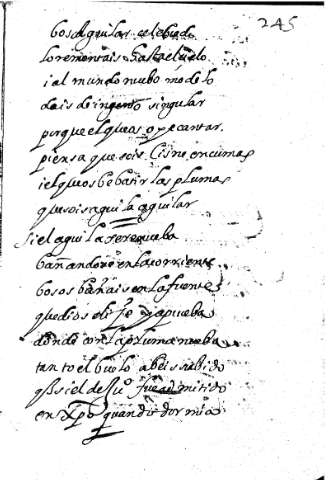 245
bos aguilar celebrado
remontais hasta el cielo
i al mundo nuebo modelo
dais de ingenio singular
porque el que os oye cantar
piensa que sois Cisne en cumas
i el que os be batir las plumas
que sois aguila aguilar
si el aguila se renueba
bañandose en la corriente
bos os bañais en la fuente
que dios y aprueba
donde con la pluma nueba
tanto el buelo abeis subido
si el de Juº fue admitido
en Xpo quando dormia